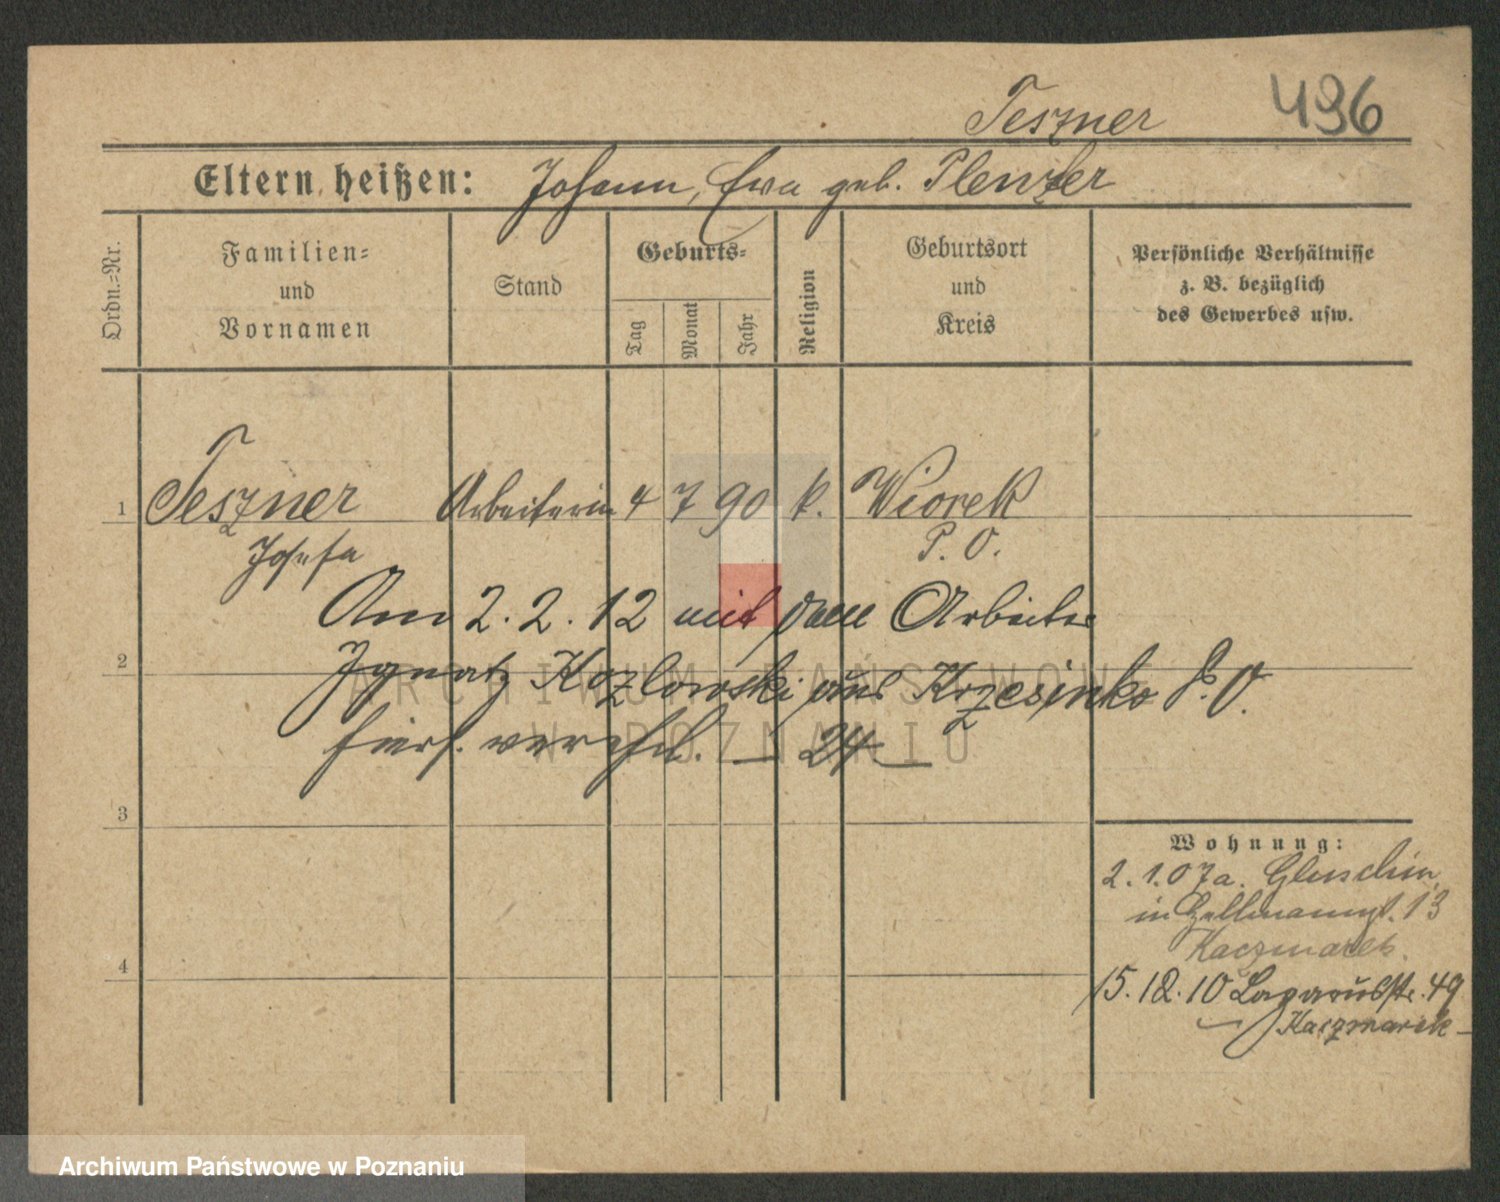 Teszner 496
Eltern heißen: Johann, Ewa geb. Plenzler
Ordn.=Nr.
Familien=
und
Vornamen
Stand
Geburts=
Tag
Monat
Jahr
Religion
Geburtsort
und
Kreis
Persönliche Verhältnisse
z. B. bezüglich
des Gewerbes usw.
1 Teszner Arbeiterin 4 7 90 k. Wiorek
Josefa P. O.
Am 2. 2. 12 mit dem Arbeiter
2
Ignatz Kozlowski aus Krzesinko P. O.
hiers. verehel. — 24 —
3
Wohnung:
2. 1. 07 a. Gluschin
in 13
Kaczmarek.
4
15. 12. 10 Lazarusstr. 49
Kaczmarek
ARCHIWUM PAŃSTWOWE
W POZNANIU
Archiwum Państwowe w Poznaniu